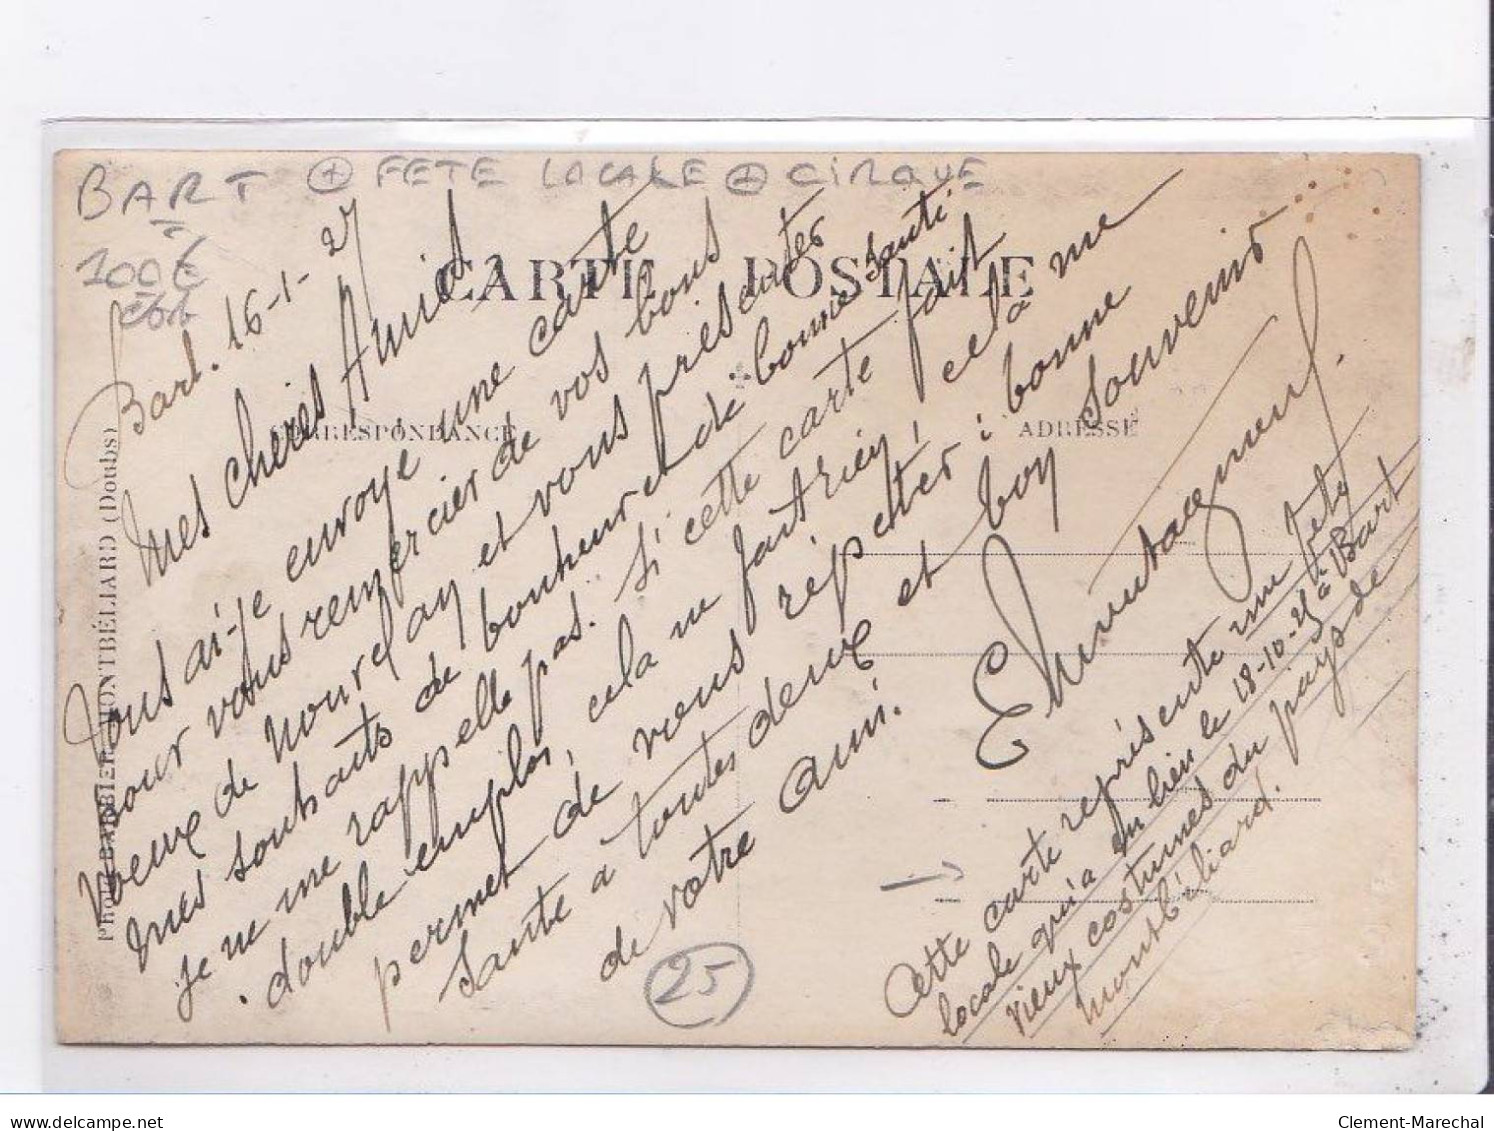 BART + FETE LOCALE + CIRQUE
100€
CARTE POSTALE
CORRESPONDANCE
ADRESSE
Photo BARBIER, MONTBÉLIARD (Doubs)
Bart. 16-1-27
Mes chères Amies
Vous ai-je envoyé une carte
pour vous remercier de vos bons
voeux de nouvel an et vous présenter
mes souhaits de bonheur et de bonne santé
je ne me rappelle pas. Si cette carte fait
double emploi, cela ne fait rien, cela me
permet de vous répéter : bonne
Santé à toutes deux et bon souvenir
de votre ami.
Cette carte représente une fête
locale qui a eu lieu le 18-10-25 à Bart
vieux costumes du pays de
Montbéliard.
25
delcampe.net
Clement-Marechal